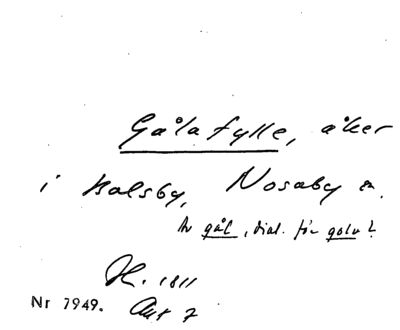 Gålafylle, åker
i Kalsby, Nosaby sn.
Av gål, dial. för golv?
H. 1811
Nr 7949. Akt 7